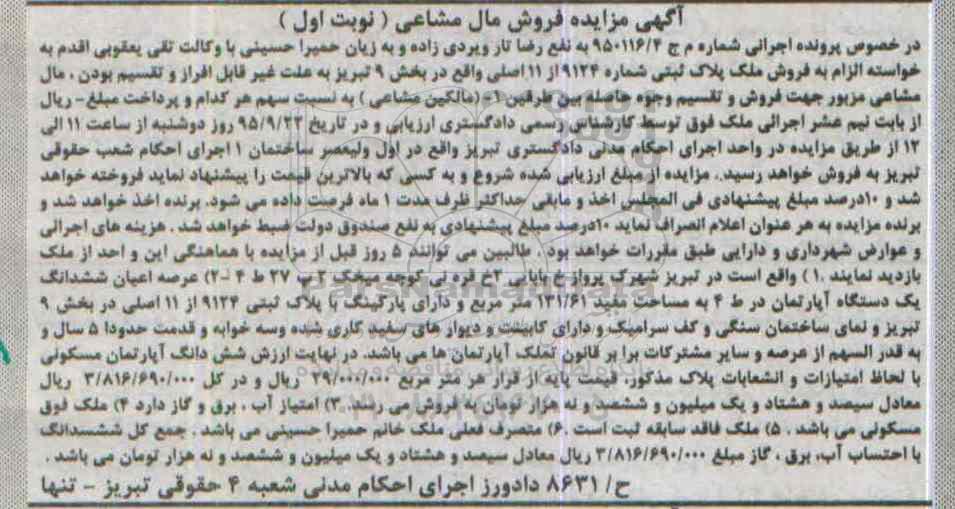 آگهی مزایده فروش مال مشاعی ( نوبت اول )
در خصوص پرونده اجرائی شماره م ج ۹۵۰۱۱۶/۴ به نفع رضا تار ویردی زاده و به زیان حمیرا حسینی با وکالت تقی یعقوبی اقدم به
خواسته الزام به فروش ملک پلاک ثبتی شماره ۹۱۲۴ از ۱۱ اصلی واقع در بخش ۹ تبریز به علت غیر قابل افراز و تقسیم بودن ، مال
مشاعی مزبور جهت فروش و تقسیم وجوه حاصله بین طرفین ۱- (مالکین مشاعی ) به نسبت سهم هر کدام و پرداخت مبلغ- ریال
از بابت نیم عشر اجرائی ملک فوق توسط کارشناس رسمی دادگستری ارزیابی و در تاریخ ۹۵/۹/۲۲ روز دوشنبه از ساعت ۱۱ الی
۱۲ از طریق مزایده در واحد اجرای احکام مدنی دادگستری تبریز واقع در اول ولیعصر ساختمان ۱ اجرای احکام شعب حقوقی
تبریز به فروش خواهد رسید.. مزایده از مبلغ ارزیابی شده شروع و به کسی که بالاترین قیمت را پیشنهاد نماید فروخته خواهد
شد و ۱۰درصد مبلغ پیشنهادی فی المجلس اخذ و مابقی حداکثر ظرف مدت ۱ ماه فرصت داده می شود. برنده اخذ خواهد شد و
برنده مزایده به هر عنوان اعلام انصراف نماید ۱۰درصد مبلغ پیشنهادی به نفع صندوق دولت ضبط خواهد شد . هزینه های اجرائی
و عوارض شهرداری و دارایی طبق مقررات خواهد بود . طالبین می توانند ۵ روز قبل از مزایده با هماهنگی این و احد از ملک
بازدید نمایند .۱ ) واقع است در تبریز شهرک پرواز خ بابایی ۲ع قره نی کوچه میخک ۲ پ ۲۷ ط ۴ -۲) عرصه اعیان ششدانگ
یک دستگاه آپارتمان در ط ۴ به مساحت مفید ۱۳۱/۶۱ متر مربع و دارای پارکینگ با پلاک ثبتی ۹۱۲۴ از ۱۱ اصلی در بخش ۹
تبریز و نمای ساختمان سنگی و کف سرامیک و دارای کابینت و دیوار های سفید کاری شده وسه خوابه و قدمت حدودا ۵ سال و
به قدر السهم از عرصه و سایر مشترکات برا بر قانون تملک آپارتمان ها می باشد. در نهایت ارزش شش دانگ آپارتمان مسکونی
با لحاظ امتیازات و انشعابات پلاک مذکور، قیمت پایه از قرار هر متر مربع ۲۹/۰۰۰/۰۰۰ ریال و در کل ۳/۸۱۶/۶۹۰/۰۰۰ ریال
معادل سیصد و هشتاد و یک میلیون و ششصد و نه هزار تومان به فروش می رسد. ۳) امتیاز آب ، برق و گاز دارد ۴) ملک فوق
مسکونی می باشد . ۵) ملک فاقد سابقه ثبت است .۶) متصرف فعلی ملک خانم حمیرا حسینی می باشد . جمع کل ششدانگ
با احتساب آب، برق ، گاز مبلغ ۳/۸۱۶/۶۹۰/۰۰۰ ریال معادل سیصد و هشتاد و یک میلیون و ششصد و نه هزار تومان می باشد .
ح/ ۸۶۳۱ دادورز اجرای احکام مدنی شعبه ۴ حقوقی تبریز - تنها